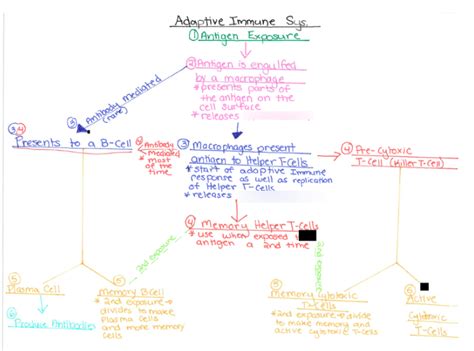 Adaptive Immune Sys.
① Antigen Exposure
② Antigen is engulfed
by a macrophage
* presents parts of
the antigen on the
cell surface
* releases
③ Antibody mediated
(rare)
③④
Presents to a B-Cell
④ Antibody
Mediated *
most of
the time
③ Macrophages present
antigen to Helper T-Cells
* start of adaptive Immune
response as well as replication
of Helper T-Cells
* releases
④ Pre-Cytoxic
T-Cell (Killer T-Cell)
④ Memory Helper T-Cells
* use when exposed to
antigen a 2nd time
2nd exposure
2nd exposure
⑤
Plasma Cell
⑥
Produce Antibodies
⑤
Memory B Cell
* 2nd exposure →
divides to make
plasma cells
and more memory
cells
⑤
Memory Cytotoxic
T-Cells
* 2nd exposure → divide
to make memory and
active cytotoxic T-Cells
⑥
Active
Cytotoxic
T-Cells